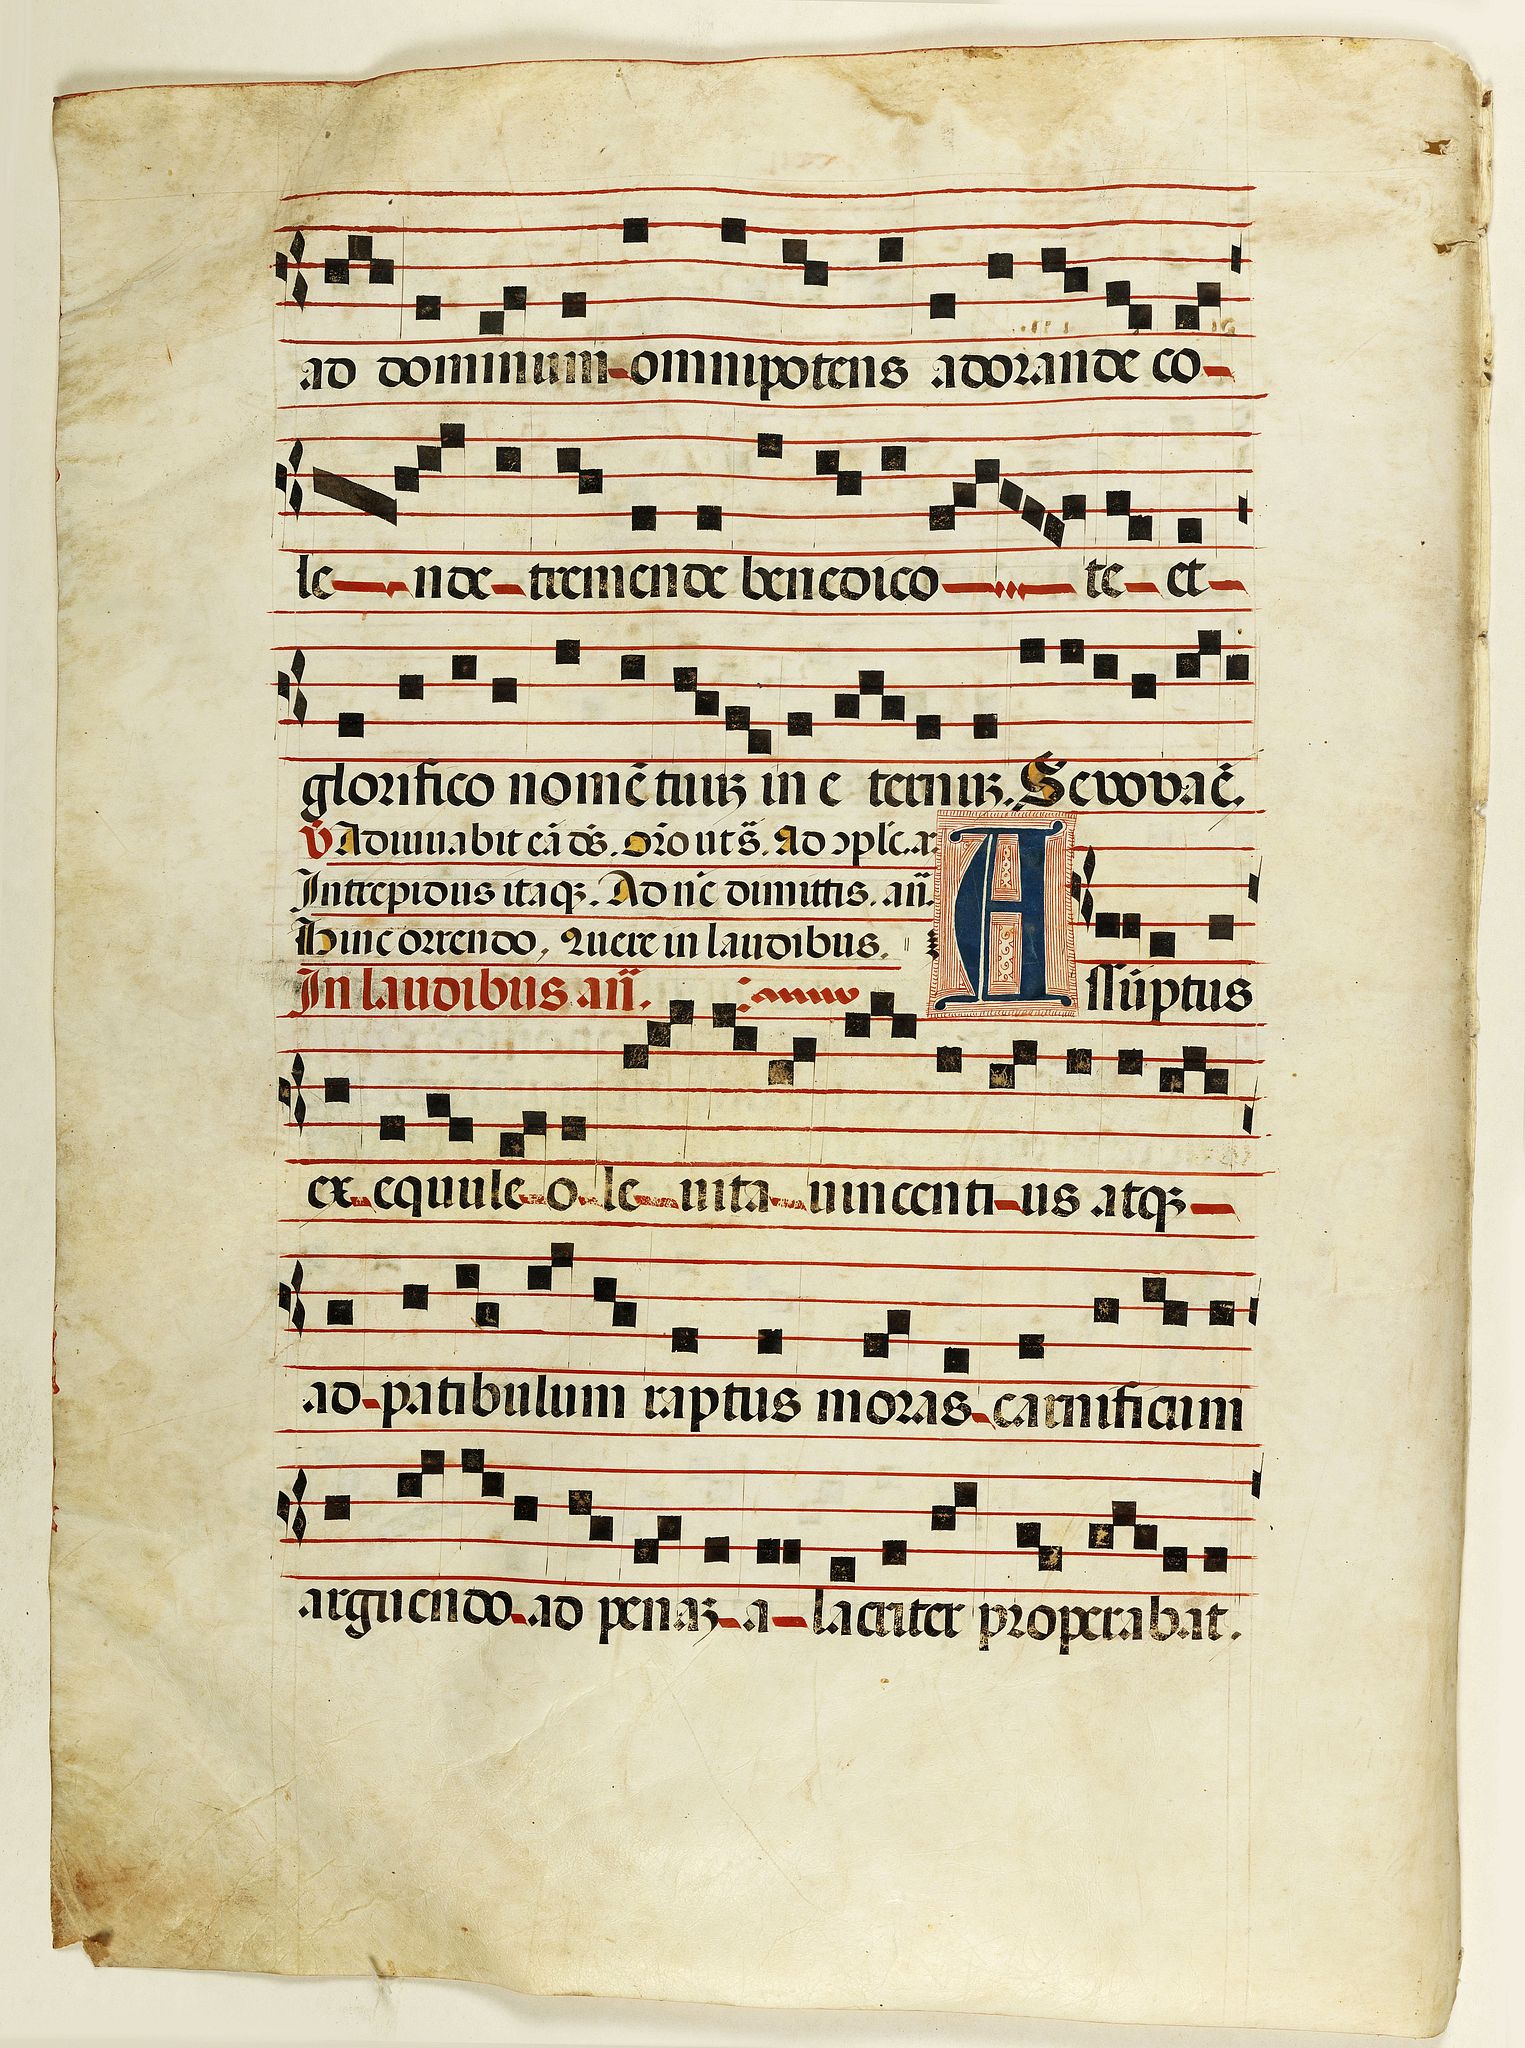 ad dominum omnipotens adorande co
le nde tremende benedico te et
glorifico nomē tuuꝫ in e ternuꝫ. Sevovaē.
℣ Adiuvabit eā dѕ̄. Or̄o ut s̄. Ad ↄpl̄e.
Intrepidus itaqꝫ. Ad nc̄ dimittis. an̄.
Hinc orrendo. Quere in laudibus.
In laudibus an̄. A ssūptus
ex equule o le vita vincenti us atqꝫ
ad patibulum raptus moras carnificum
arguendo ad penaꝫ a lacriter properabat.